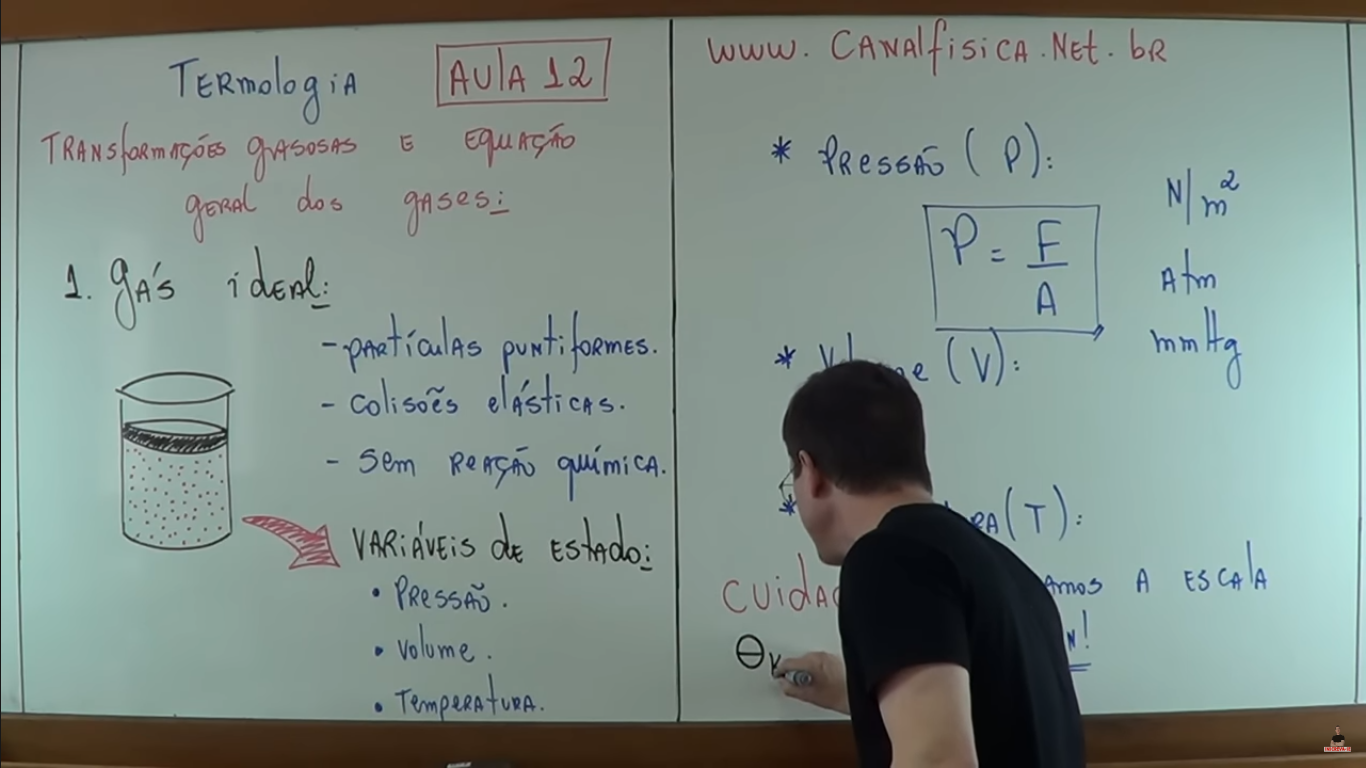 Termologia
AULA 12
Transformações gasosas e equação
geral dos gases:
1. Gás ideal:
- partículas puntiformes.
- colisões elásticas.
- sem reação química.
Variáveis de estado:
• Pressão.
• Volume.
• Temperatura.
www.Canalfisica.Net.br
* Pressão (P):
P = F
A
N/m²
Atm
mmHg
* (V):
* (T):
a escala
θ